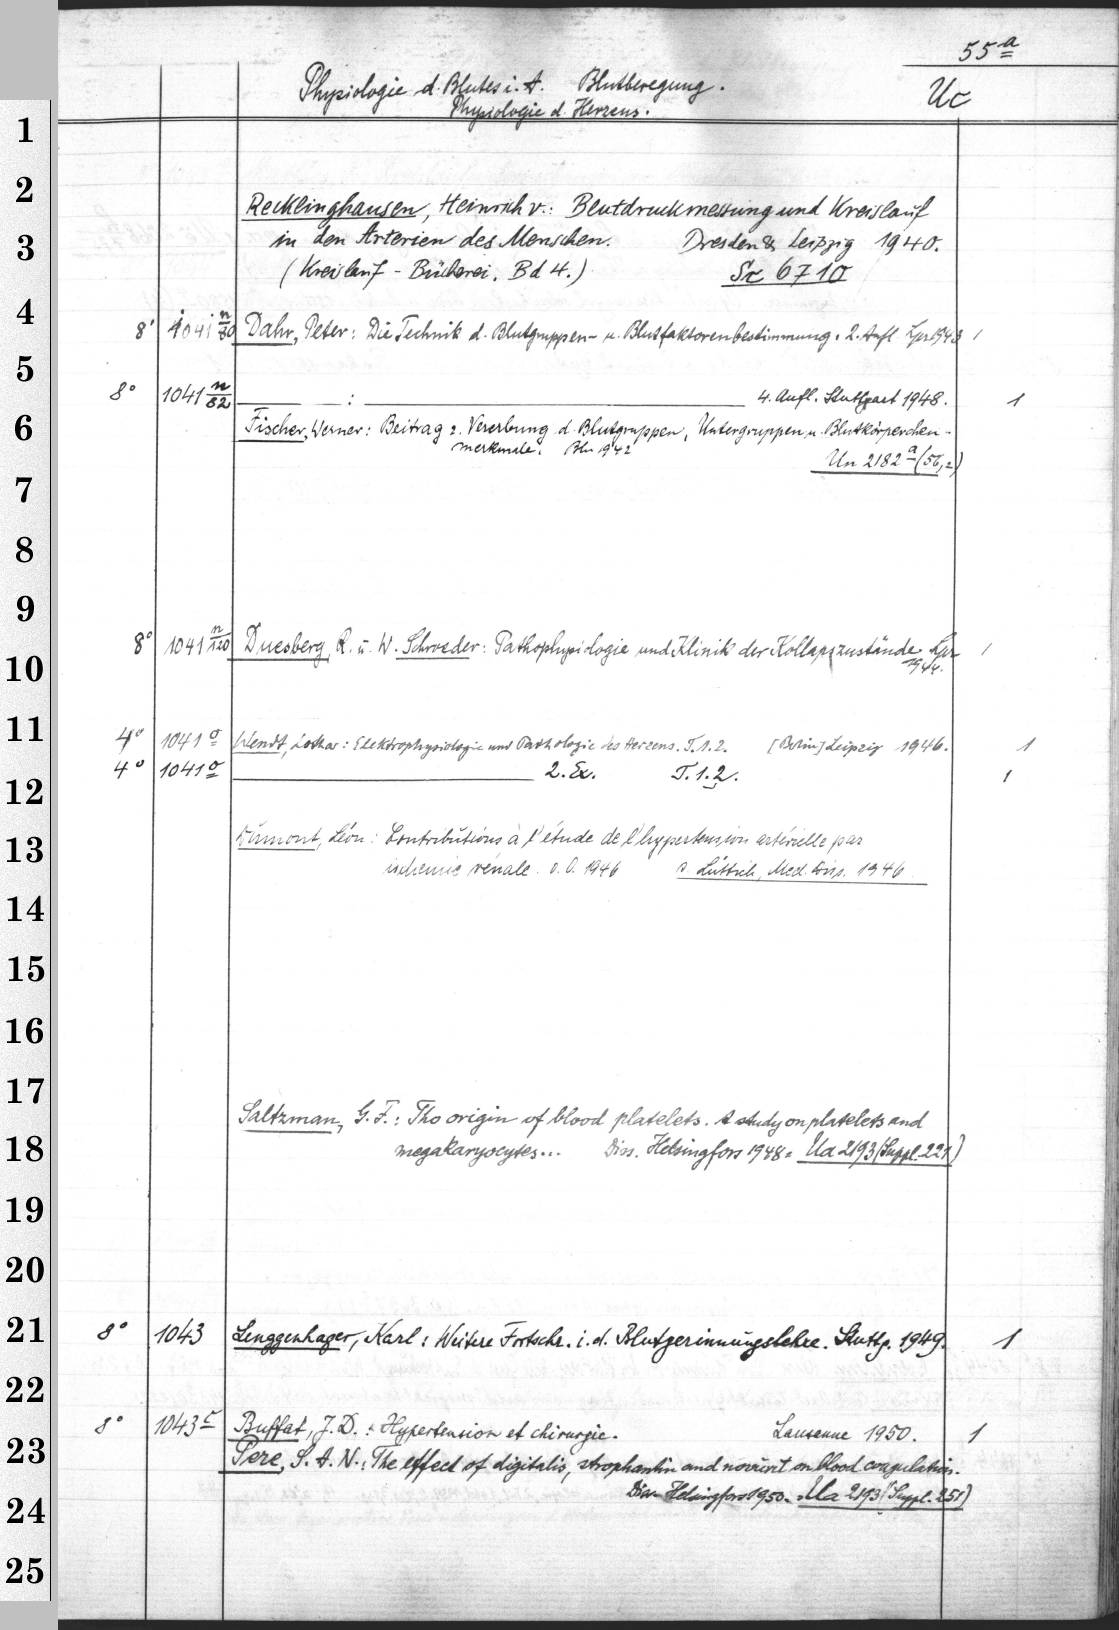 55a
Physiologie d. Blutes i. A. Blutbewegung. Uc
Physiologie d. Herzens.
1
2
Recklinghausen, Heinrich v.: Blutdruckmessung und Kreislauf
3
in den Arterien des Menschen. Dresden & Leipzig 1940.
(Kreislauf - Bücherei. Bd 4.) Sc 6710
4
8° 1041 n/80 Dahr, Peter: Die Technik d. Blutgruppen- u. Blutfaktorenbestimmung. 2. Aufl. Lpz 1943 1
5
8° 1041 n/82 ——— : ——— 4. Aufl. Stuttgart 1948. 1
6
Fischer, Werner: Beitrag z. Vererbung d. Blutgruppen, Untergruppen u. Blutkörperchen-
merkmale. Bln 1942 Un 2182 a (56,2)
7
8
9
8° 1041 n/120 Duesberg, R. u. W. Schroeder: Pathophysiologie und Klinik der Kollapszustände. Lpz 1
10
1944.
11
4° 1041 o Wendt, Lothar: Elektrophysiologie und Pathologie des Herzens. T. 1.2. [Berlin] Leipzig 1946. 1
4° 1041 o ——— 2. Ex. T. 1.2. 1
12
13
Dumont, Léon: Contributions à l'étude de l'hypertension artérielle par
ischémie rénale. o. O. 1946 s. Lüttich, Med. Diss. 1946
14
15
16
17
Saltzman, G. F.: The origin of blood platelets. A study on platelets and
18
megakaryocytes... Diss. Helsingfors 1948 = Ua 2193 (Suppl. 221)
19
20
21
8° 1043 Lenggenhager, Karl: Weitere Fortschr. i. d. Blutgerinnungslehre. Stuttg. 1949. 1
22
8° 1043 c Buffat, J. D.: Hypertension et chirurgie. Lausanne 1950. 1
23
Pere, S. A. N.: The effect of digitalis, strophantin and novurit on blood coagulation.
Diss. Helsingfors 1950. Ua 2193 (Suppl. 251)
24
25